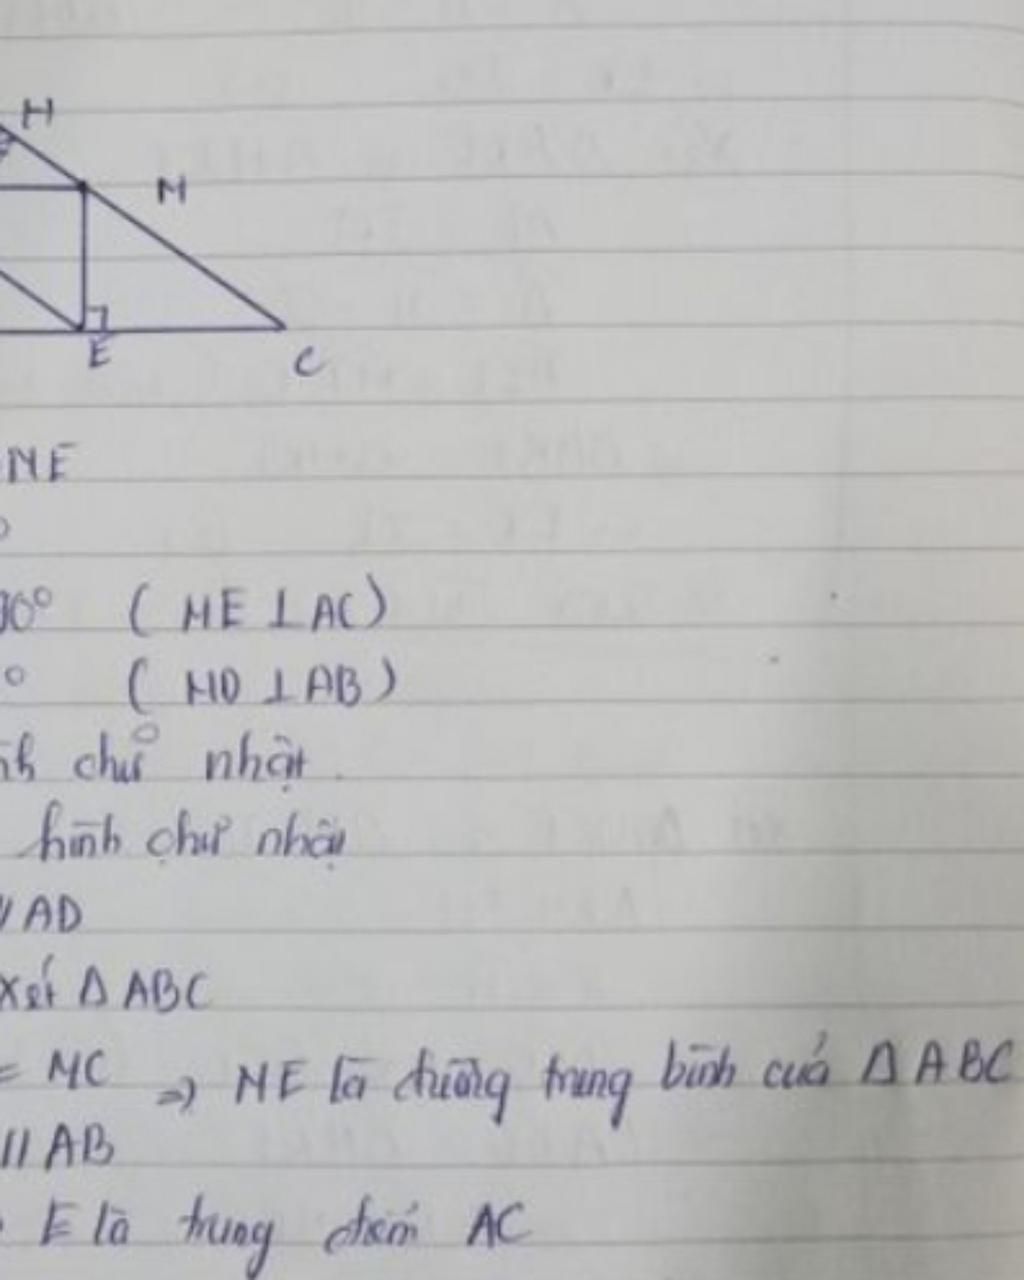 H
M
E
C
ME
90° ( ME ⊥ AC )
° ( MD ⊥ AB )
chữ nhật.
hình chữ nhật
// AD
xét Δ ABC
= MC => ME là đường trung bình của Δ ABC
// AB
E là trung điểm AC